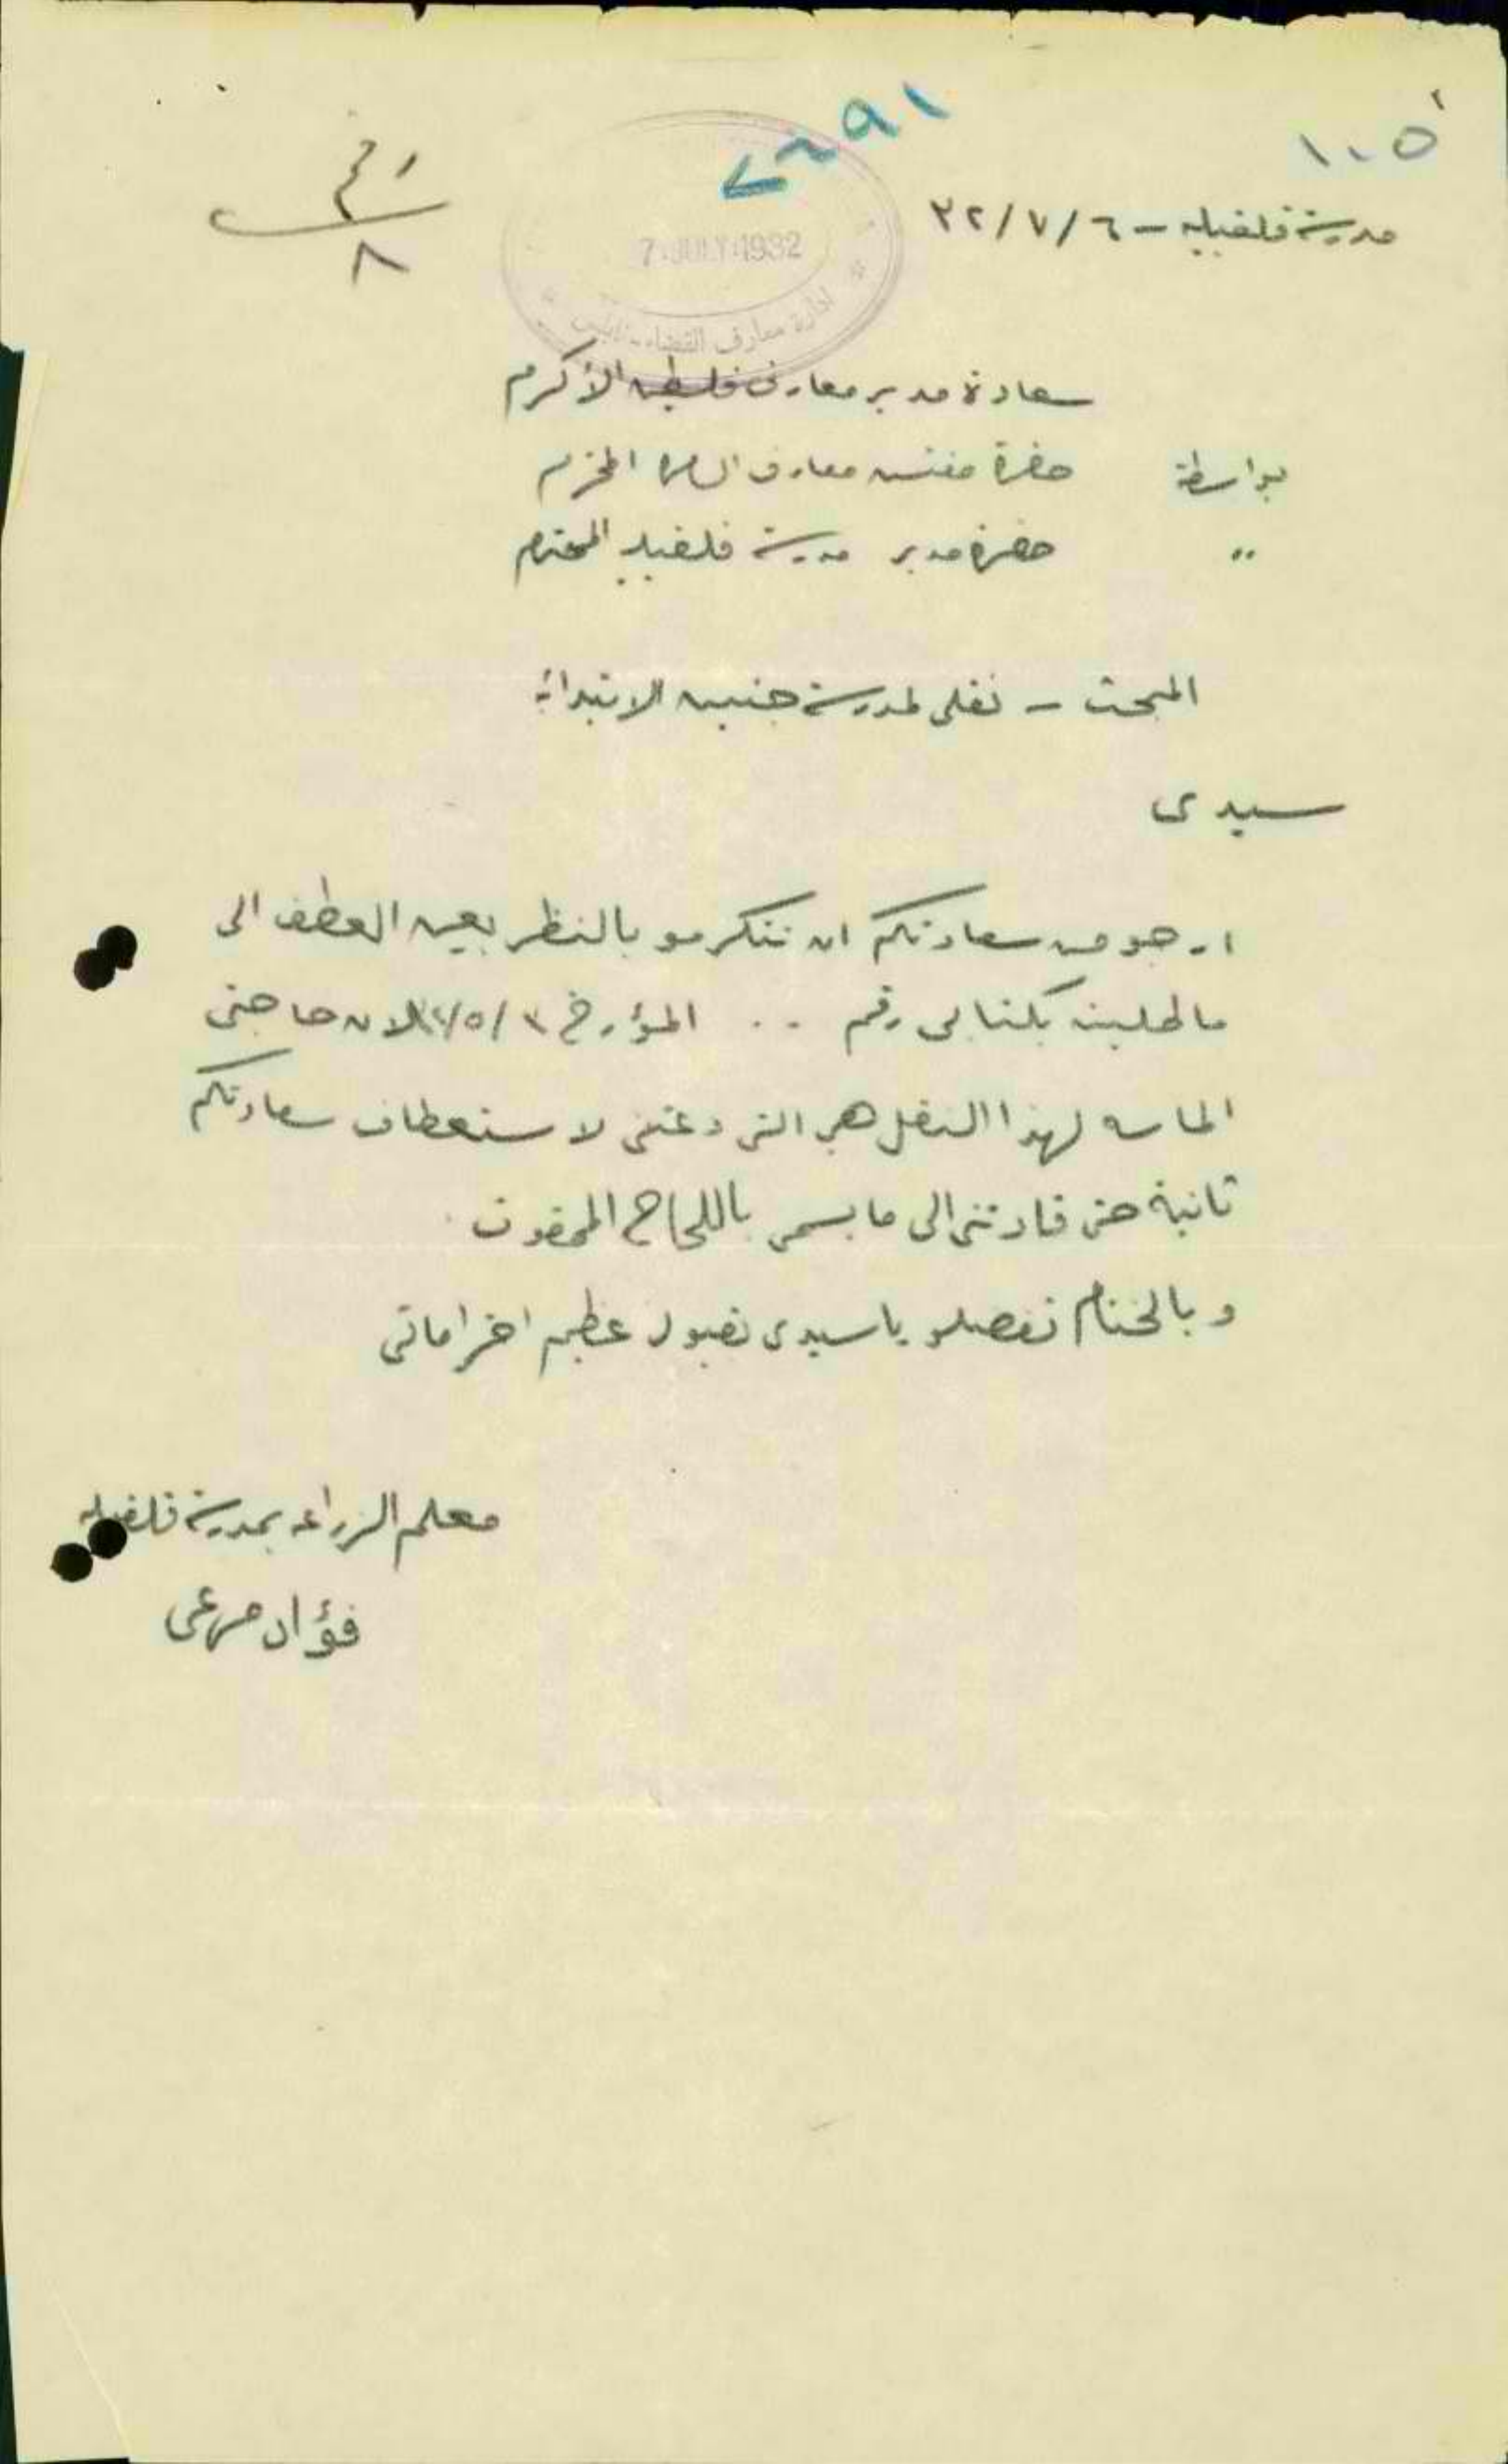 ١٠٥
رقم
٨
مدرسة قلقيليه - ٦/٧/٣٢
7 JULY 1932
ادارة معارف القضاء - نابلس
سعادة مدير معارف فلسطين الأكرم
بواسطة حضرة مفتش معارف المحترم
" حضرة مدير مدرسة قلقيليه المحترم
المبحث - نقلي لمدرسة جنين الابتدائية
سيدى
ارجو من سعادتكم ان تتكرمو بالنظر بعين العطف الى
ما طلبته بكتابى رقم .. المؤرخ لان حاجتى
الماسه لهذا النقل هى التى دعتنى لاستعطاف سعادتكم
ثانية حتى قادتنى الى ما يسمى باللجاح الممقوت .
وبالختام تفضلو يا سيدى بقبول عظيم احتراماتى
معلم الزراعه بمدرسة قلقيليه
فؤاد مرعى